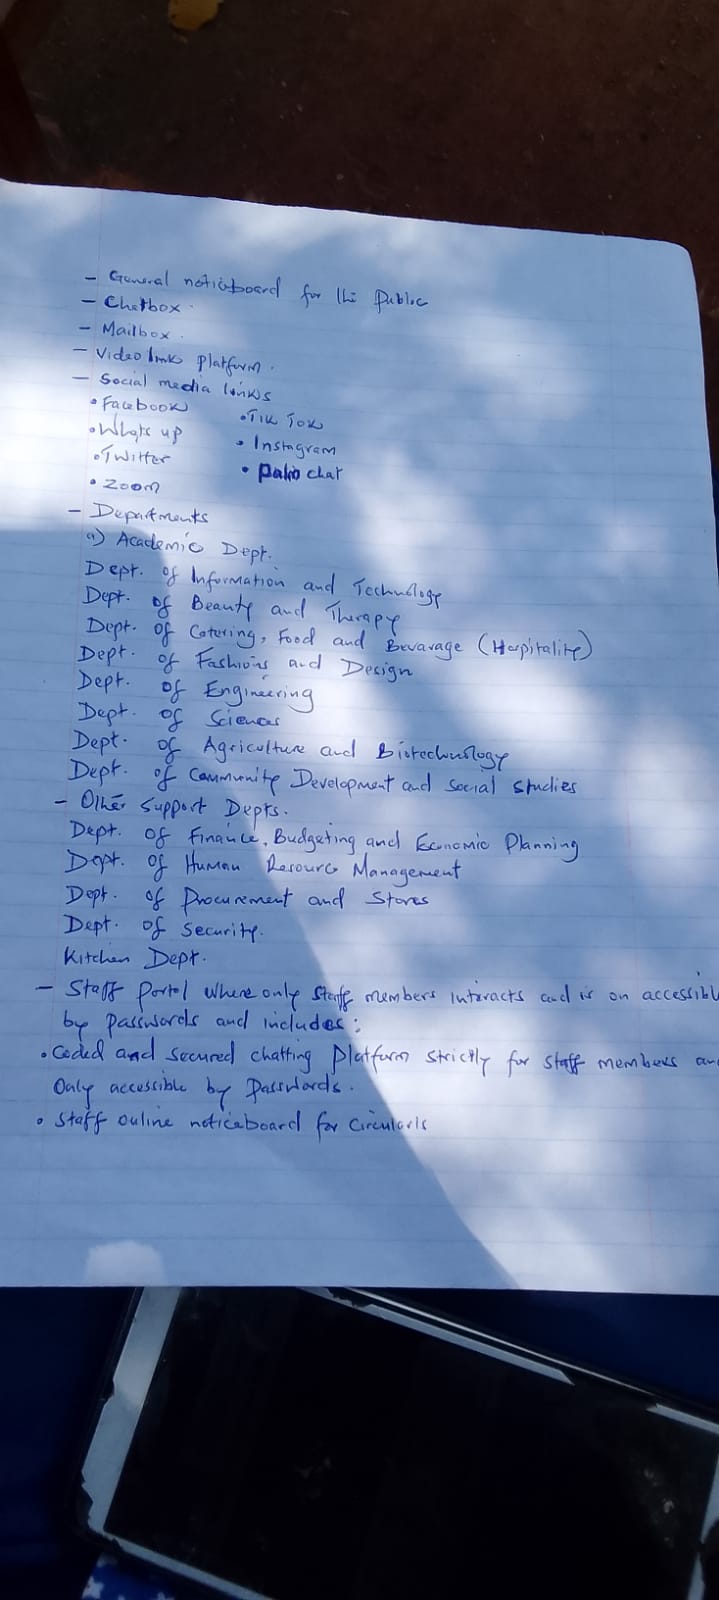 - General noticeboard for the public
- Chatbox.
- Mailbox.
- Video links platform.
- Social media links
• Facebook
• Whats up
• Twitter
• Zoom
• Tik Tok
• Instagram
• Palio chat
- Departments
a) Academic Dept.
Dept. of Information and Technology
Dept. of Beauty and Therapy
Dept. of Catering, Food and Bevarage (Hospitality)
Dept. of Fashions and Design
Dept. of Engineering
Dept. of Sciences
Dept. of Agriculture and Biotechnology
Dept. of Community Development and Social Studies
- Other Support Depts.
Dept. of Finance, Budgeting and Economic Planning
Dept. of Human Resource Management
Dept. of Procurement and Stores
Dept. of Security.
Kitchen Dept.
- Staff portal where only staff members interacts and is on accessible
by passwords and includes;
• Coded and secured chatting platform strictly for staff members an
only accessible by passwords.
• Staff online noticeboard for circulars